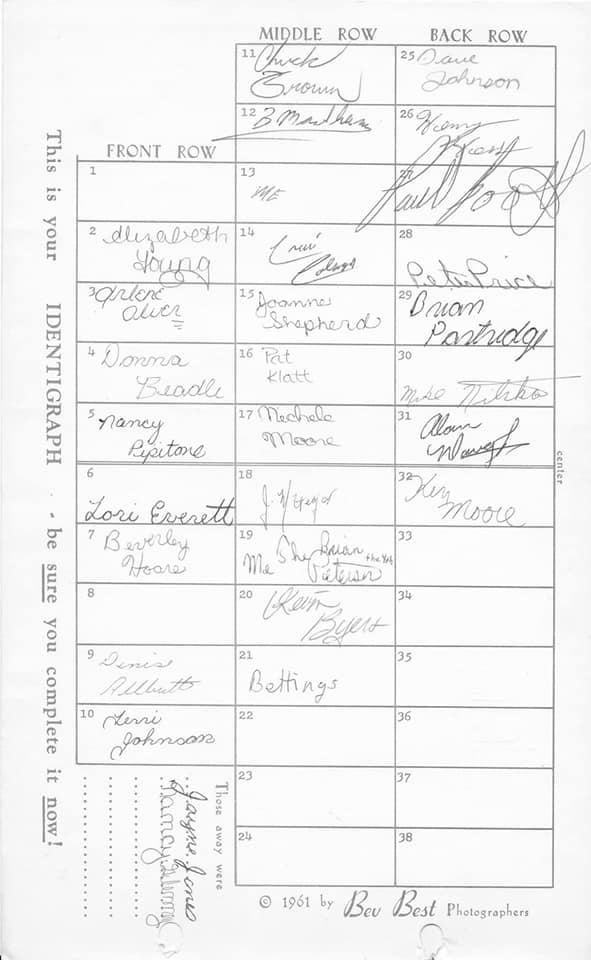 MIDDLE ROW
BACK ROW
FRONT ROW
This is your IDENTIGRAPH - be sure you complete it now!
1
2 Elizabeth
Young
3 Arlene
Alver
4 Donna
Beadle
5 Nancy
Pipitone
6
Lori Everett
7 Beverley
Hoare
8
9 Denis
Allbutt
10 Terri
Johnson
11 Chuck
Brown
12 B
13
ME
14
15 Joanne
Shepherd
16 Pat
Klatt
17 Mechele
Moore
18
19 Me The Brian the
Pieterson
20 Kevin
Byers
21
Bettings
22
23
24
25 Dave
Johnson
26 Henry
27
Paul
28
Peter Price
29
Brian
Partridge
30
Mike
31
Alan
32 Ken
Moore
33
34
35
36
37
38
center
Those away were
Jayne Jones
Nancy
© 1961 by Bev Best Photographers